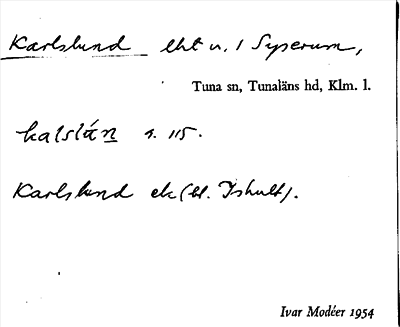 Karlslund lht u. / Syserum,
Tuna sn, Tunaläns hd, Klm. l.
kalslán s. 115.
Karlslund ek (bl. Ishult).
Ivar Modéer 1954